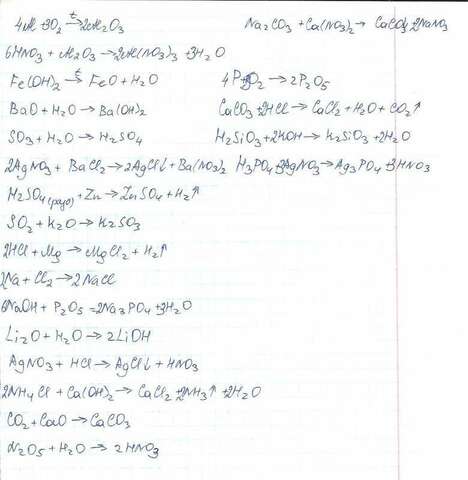 4Al + 3O₂ →ᵗ 2Al₂O₃
Na₂CO₃ + Ca(NO₃)₂ → CaCO₃ 2NaNO₃
6HNO₃ + Al₂O₃ → 2Al(NO₃)₃ + 3H₂O
Fe(OH)₂ →ᵗ FeO + H₂O
4P + 5O₂ → 2P₂O₅
BaO + H₂O → Ba(OH)₂
CaCO₃ + 2HCl → CaCl₂ + H₂O + CO₂↑
SO₃ + H₂O → H₂SO₄
H₂SiO₃ + 2KOH → K₂SiO₃ + 2H₂O
2AgNO₃ + BaCl₂ → 2AgCl↓ + Ba(NO₃)₂
H₃PO₄ + 3AgNO₃ → Ag₃PO₄ + 3HNO₃
H₂SO₄ (разб) + Zn → ZnSO₄ + H₂↑
SO₂ + K₂O → K₂SO₃
2HCl + Mg → MgCl₂ + H₂↑
2Na + Cl₂ → 2NaCl
6NaOH + P₂O₅ = 2Na₃PO₄ + 3H₂O
Li₂O + H₂O → 2LiOH
AgNO₃ + HCl → AgCl↓ + HNO₃
2NH₄Cl + Ca(OH)₂ → CaCl₂ + 2NH₃↑ + 2H₂O
CO₂ + CaO → CaCO₃
N₂O₅ + H₂O → 2HNO₃